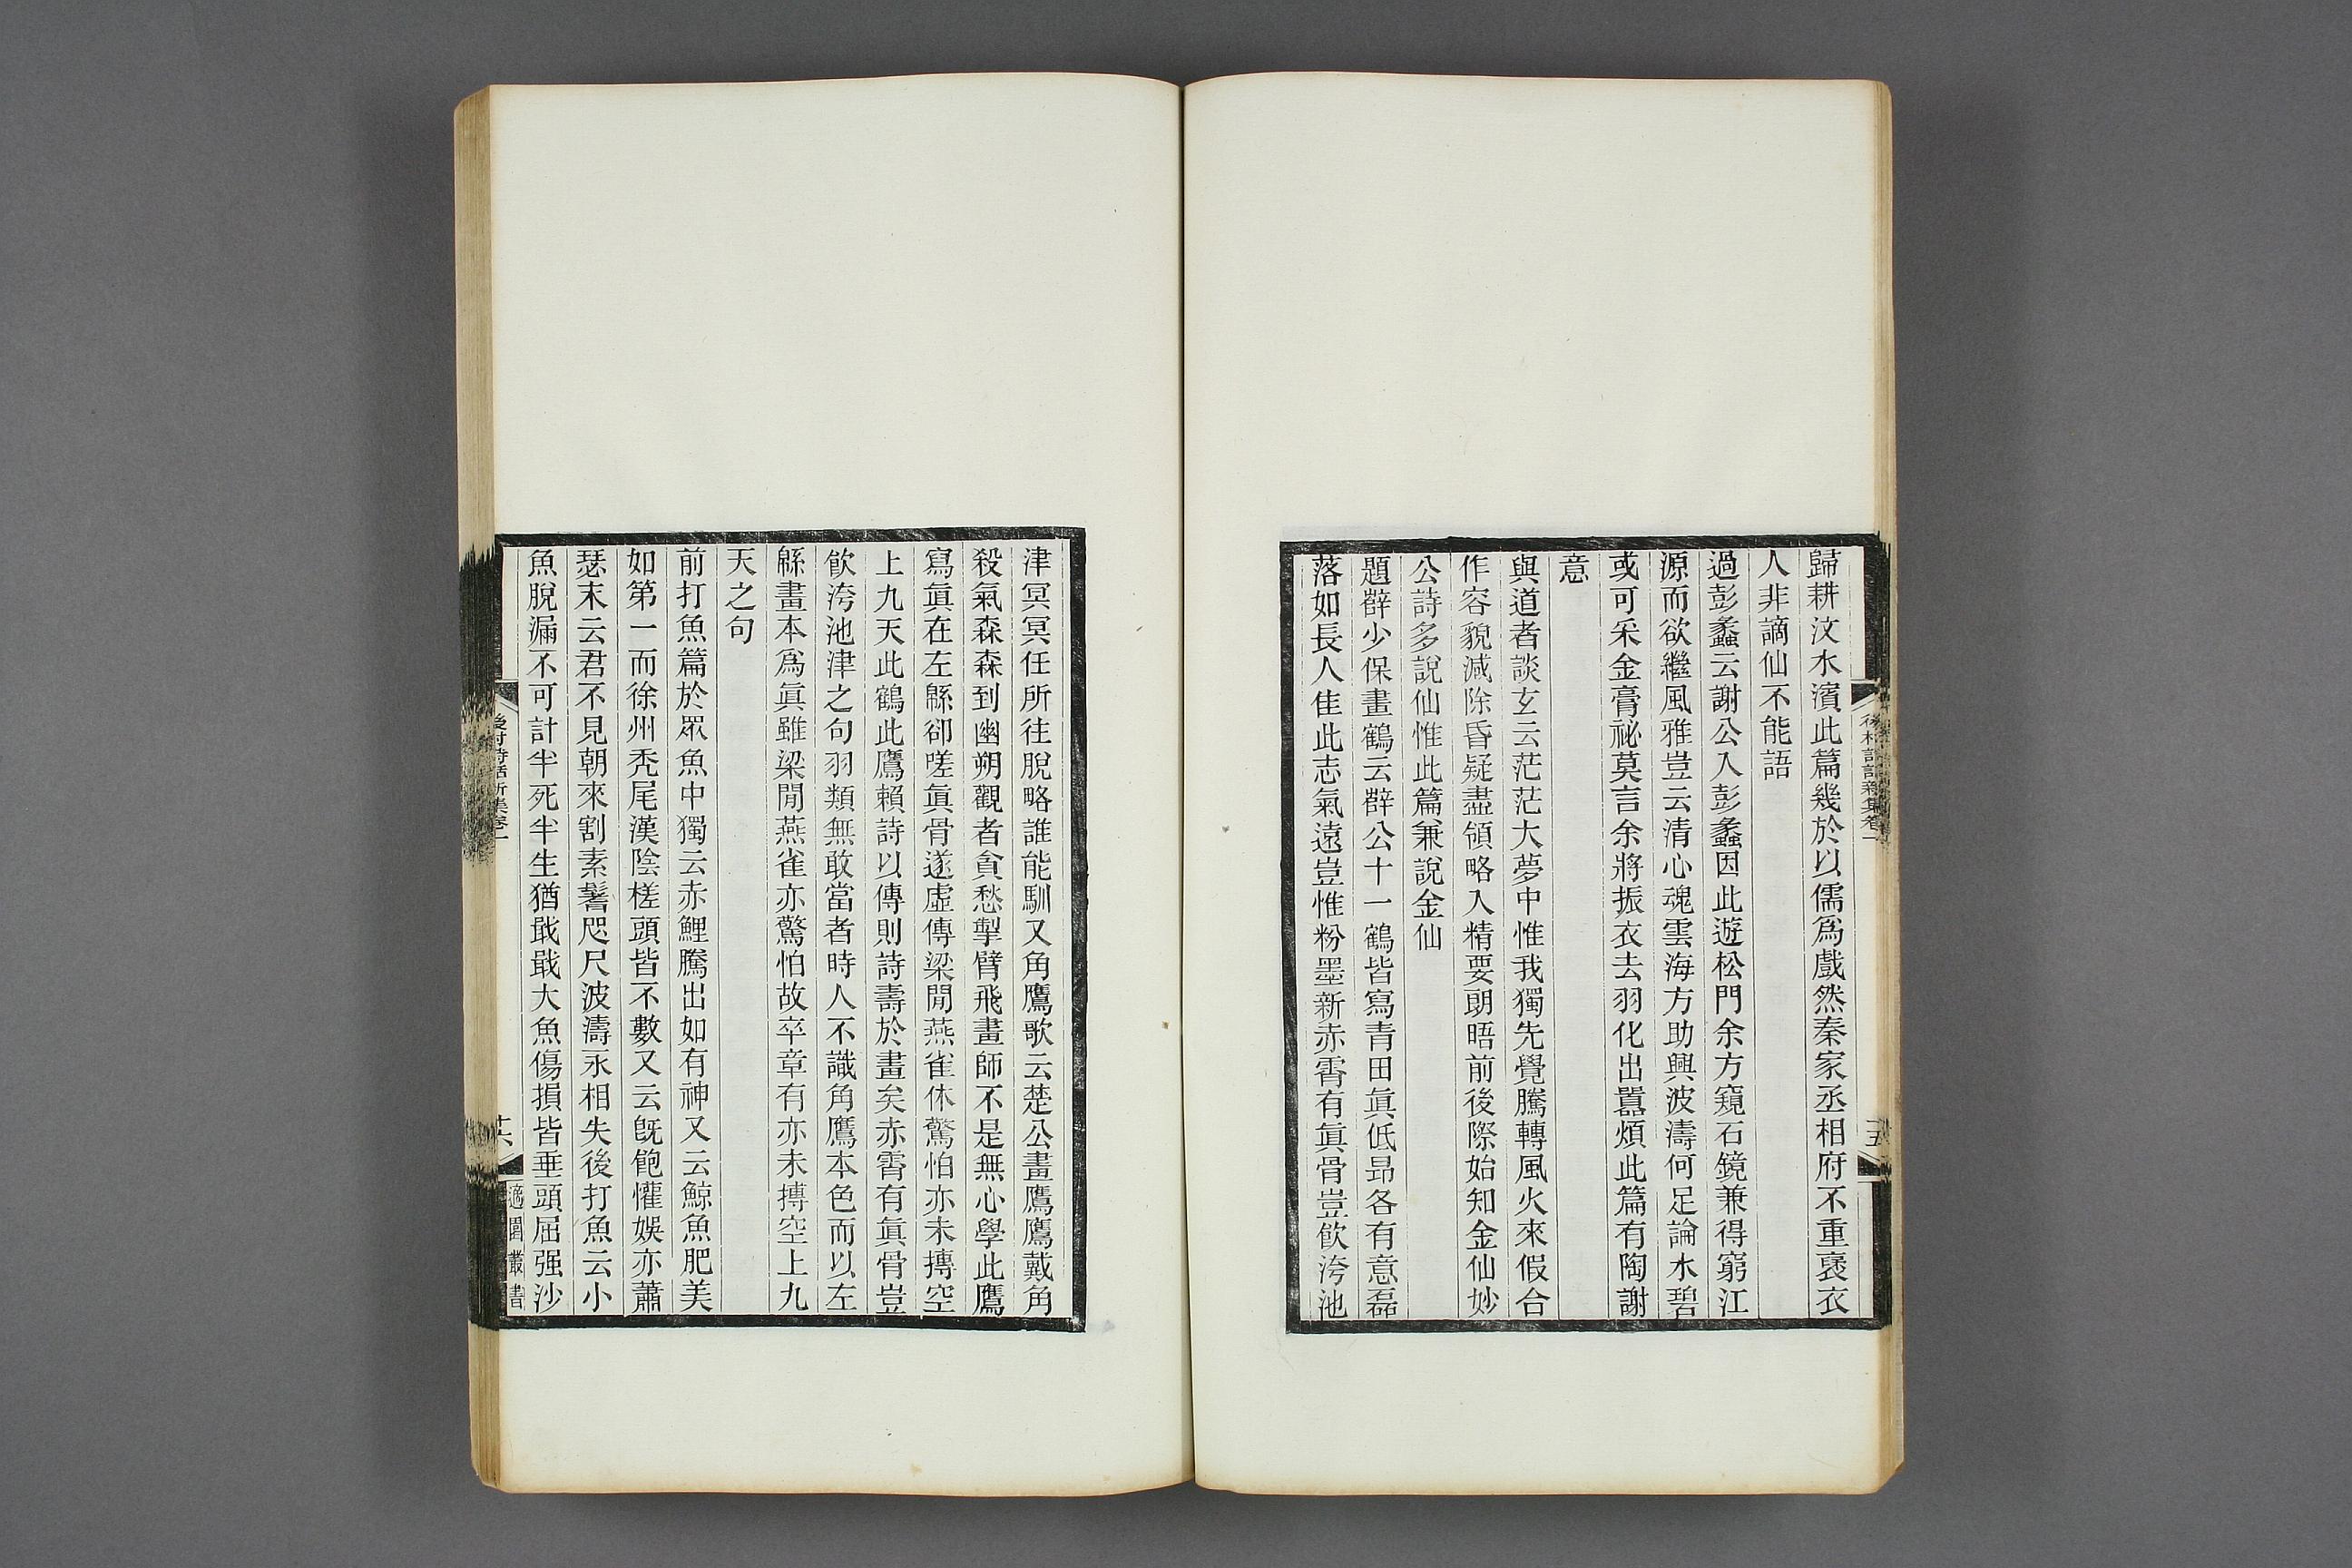 歸耕汶水濱此篇幾於以儒爲戲然秦家丞相府不重裦衣
人非謫仙不能語
過彭蠡云謝公入彭蠡因此遊松門余方窺石鏡兼得窮江
源而欲繼風雅豈云清心魂雲海方助興波濤何足論水碧
或可采金膏祕莫言余將振衣去羽化出囂煩此篇有陶謝
意
與道者談玄云茫茫大夢中惟我獨先覺騰轉風火來假合
作容貌減除昏疑盡領略入精要朗晤前後際始知金仙妙
公詩多說仙惟此篇兼說金仙
題辥少保畫鶴云辥公十一鶴皆寫青田眞低昻各有意磊
落如長人隹此志氣遠豈惟粉墨新赤霄有眞骨豈飲洿池
後村詩話新集卷一
十五
津冥冥任所往脫略誰能馴又角鷹歌云楚公畫鷹鷹戴角
殺氣森森到幽朔觀者貪愁掣臂飛畫師不是無心學此鷹
寫眞在左緜卻嗟眞骨遂虛傳梁閒燕雀休驚怕亦未摶空
上九天此鶴此鷹賴詩以傳則詩壽於畫矣赤霄有眞骨豈
飲洿池津之句羽類無敢當者時人不識角鷹本色而以左
緜畫本爲眞雖梁閒燕雀亦驚怕故卒章有亦未摶空上九
天之句
前打魚篇於眾魚中獨云赤鯉騰出如有神又云鯨魚肥美
如第一而徐州禿尾漢陰槎頭皆不數又云旣飽懽娛亦蕭
瑟末云君不見朝來割素鬐咫尺波濤永相失後打魚云小
魚脫漏不可計半死半生猶戢戢大魚傷損皆垂頭屈强沙
後村詩話新集卷一
十六
適園叢書